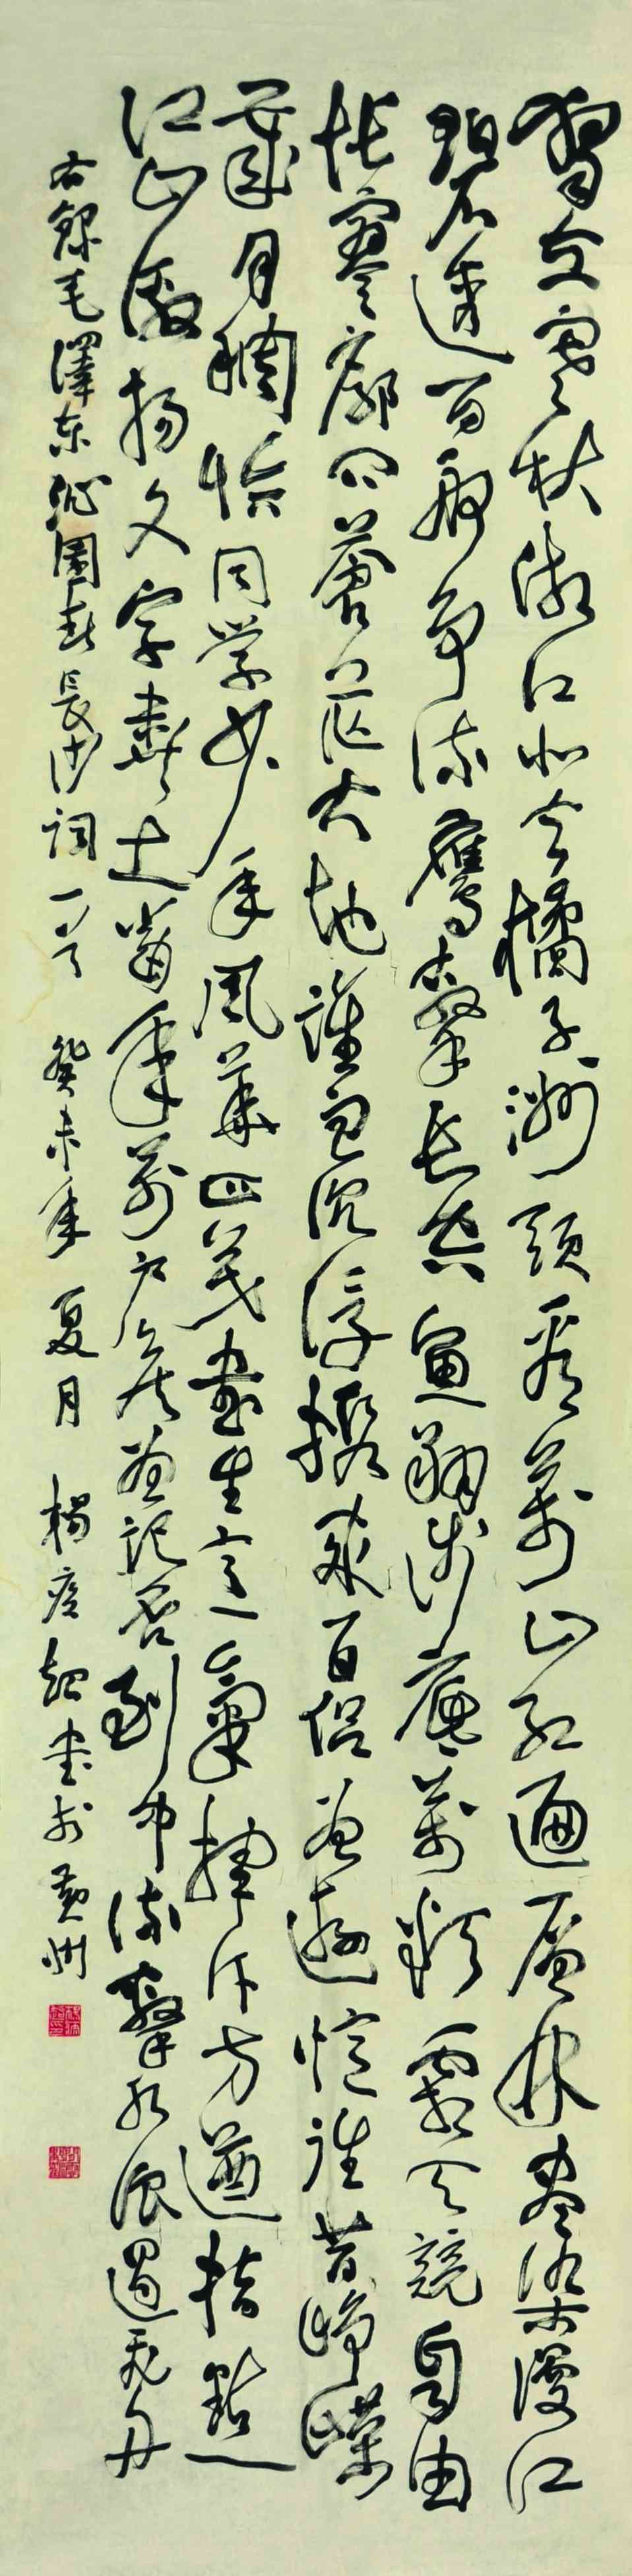 獨立寒秋湘江北去橘子洲頭看萬山紅遍層林盡染漫江
碧透百舸争流鷹擊長空魚翔淺底萬類霜天競自由
悵寥廓问蒼茫大地誰主沉浮攜來百侣曾遊憶往昔崢嶸
歲月稠恰同學少年風華正茂書生意氣揮斥方遒指點
江山激揚文字糞土當年萬户侯曾記否到中流擊水浪遏飛舟
右錄毛澤东沁園春長沙詞一首 癸未年夏月 楊超書於黄州